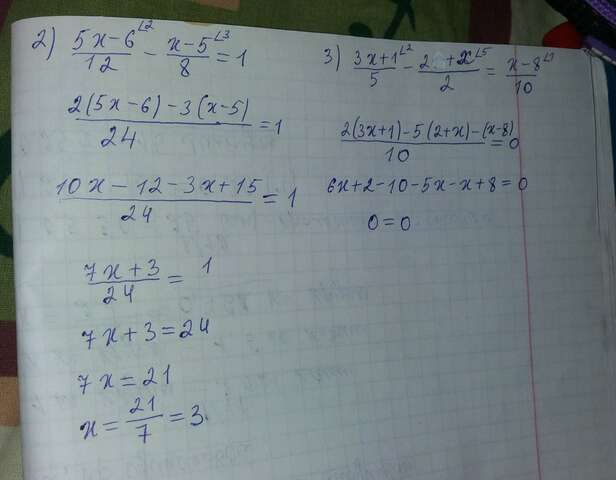 2) (5x-6)/12 ∟2 - (x-5)/8 ∟3 = 1
(2(5x-6)-3(x-5))/24 = 1
(10x-12-3x+15)/24 = 1
(7x+3)/24 = 1
7x+3=24
7x=21
x=21/7=3
3) (3x+1)/5 ∟2 - (2+x)/2 ∟5 = (x-8)/10 ∟1
(2(3x+1)-5(2+x)-(x-8))/10 = 0
6x+2-10-5x-x+8=0
0=0